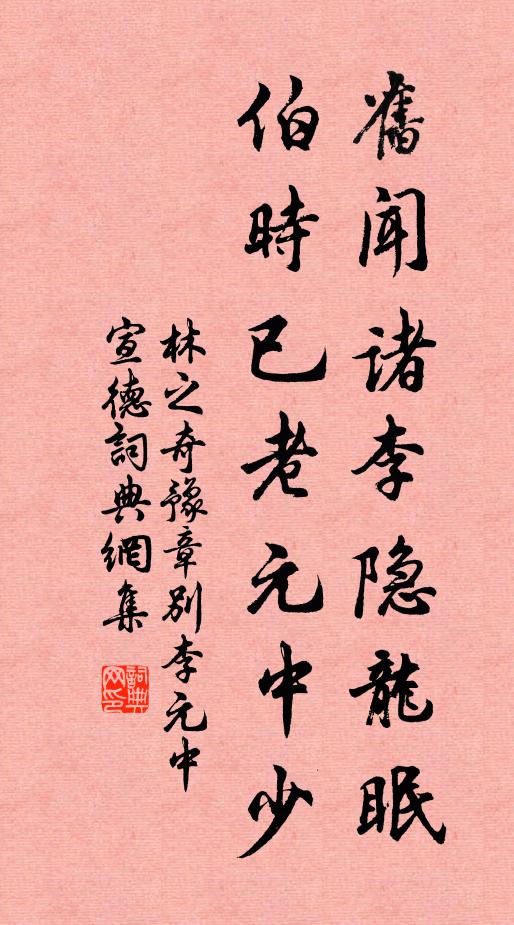 舊聞诸李隐龍眠
伯時已老元中少
林之奇豫章别李元中
宣德詞典網集
詞典网印